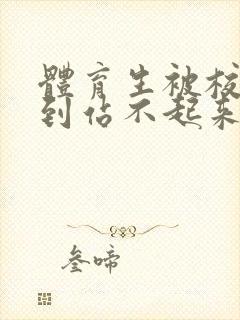 體育生被校
到佔不起來
叁啼